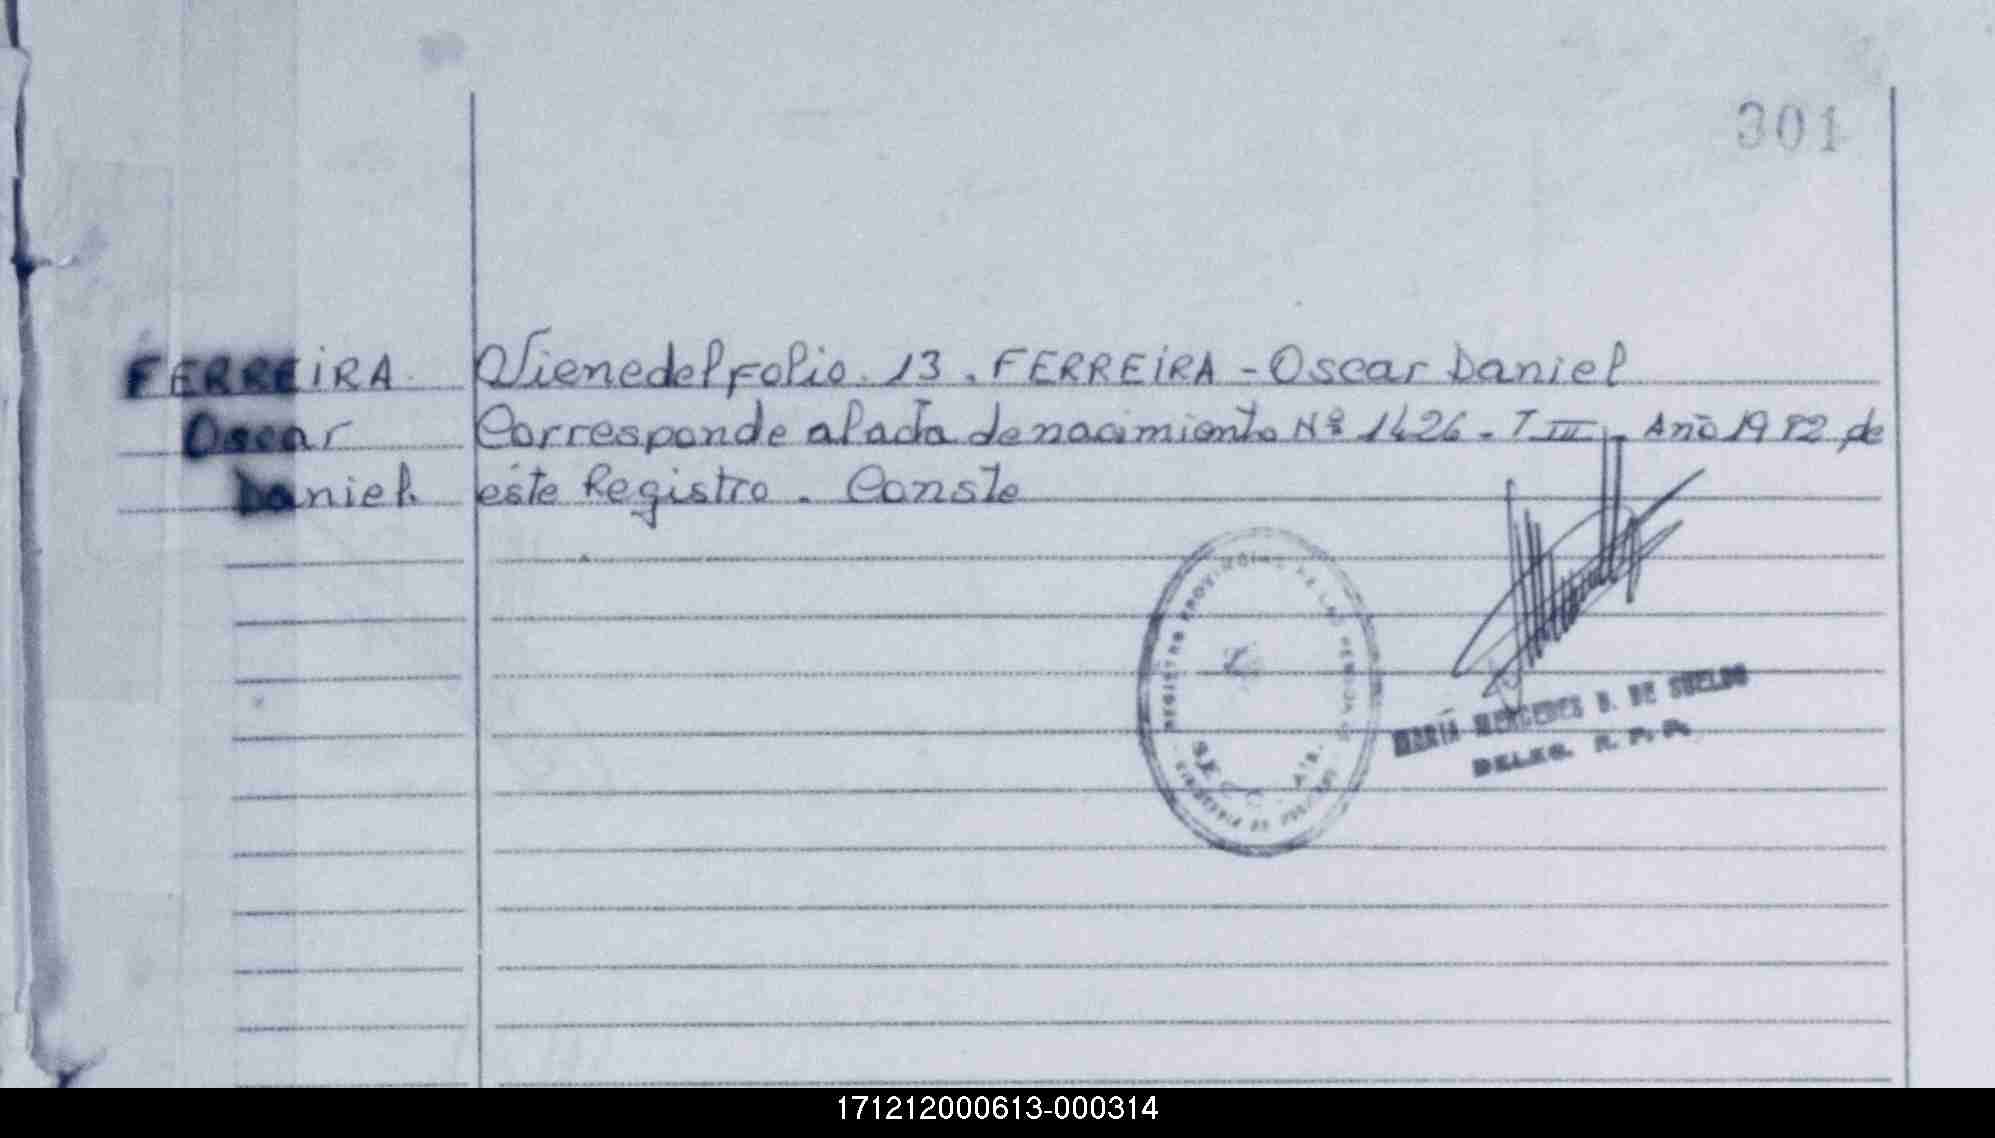 301
FERREIRA Viene del Folio 13. FERREIRA - Oscar Daniel
Oscar Corresponde al acta de nacimiento Nº 1426 - T III - Año 1982 de
Daniel este Registro. Conste
REGISTRO PROVINCIAL DE LAS PERSONAS
MARIA MERCEDES B. DE SUELDO
DELEG. R. P. P.
171212000613-000314